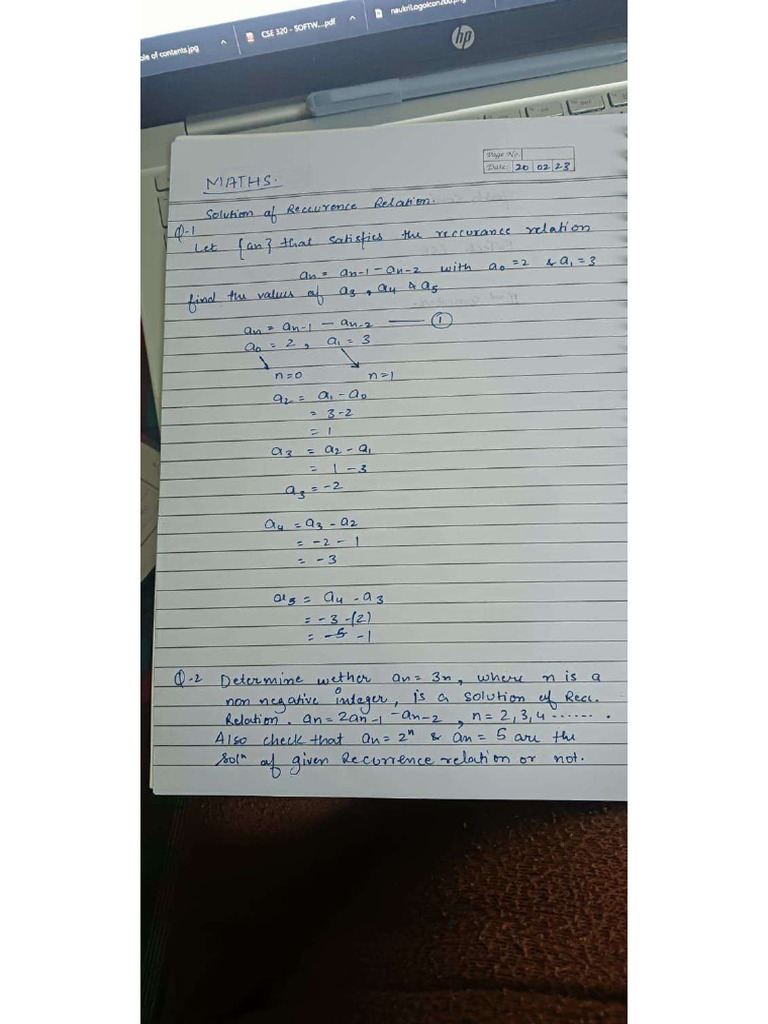 ble of contents.jpg
CSE 320 - SOFTW....pdf
naukriLogoIcon200.png
hp
Page No.
Date: 20 02 23
MATHS.
Solution of Reccurence Relation.
Q-1
Let {an} that satisfies the reccurance relation
an = an-1 - an-2 with a0 = 2 & a1 = 3
find the values of a3, a4 & a5
an = an-1 - an-2 —— ①
a0 = 2, a1 = 3
n=0 n=1
a2 = a1 - a0
= 3-2
= 1
a3 = a2 - a1
= 1 - 3
a3 = -2
a4 = a3 - a2
= -2 - 1
= -3
a5 = a4 - a3
= -3 -(2)
= -5 -1
Q-2 Determine wether an = 3n, where n is a
non negative integer, is a solution of Recc.
Relation. an = 2an-1 - an-2, n = 2,3,4 .......
Also check that an = 2ⁿ & an = 5 are the
Solⁿ of given Recurrence relation or not.